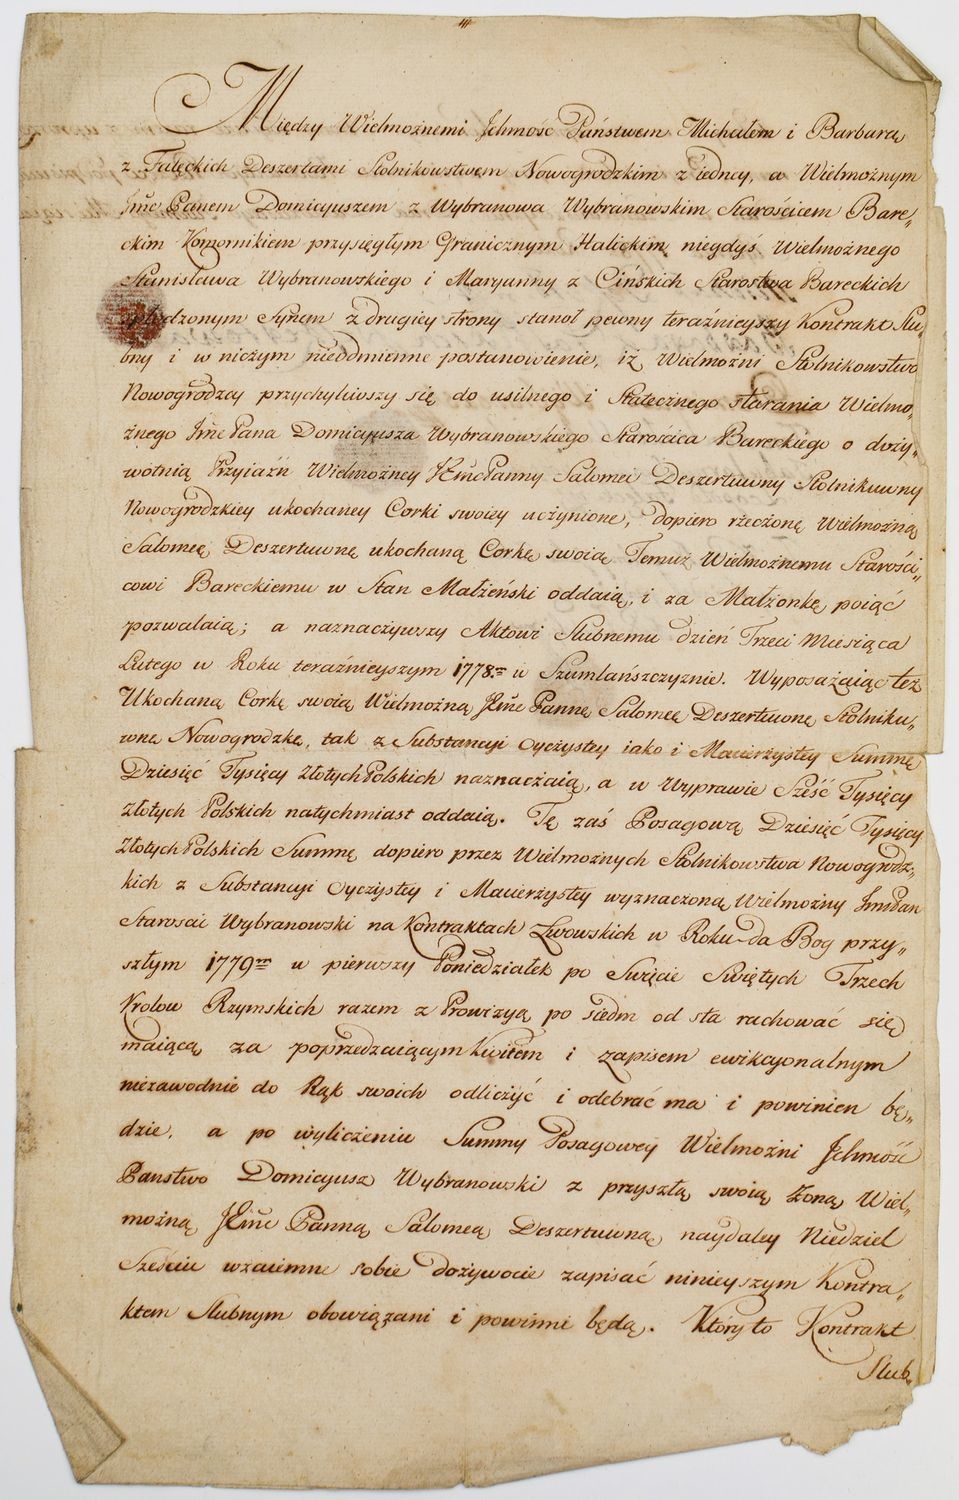 Między Wielmożnemi Jchmość Państwem Michałem i Barbarą
z Falęckich Deszertami Stolnikowstwem Nowogrodzkim z iedney, a Wielmożnym
Jmć Panem Domicyuszem z Wybranowa Wybranowskim Starościcem Bare„
ckim Komornikiem przysięgłym Granicznym Halickim, niegdyś Wielmożnego
Stanisława Wybranowskiego i Maryanny z Cińskich Starostwa Bareckich
spłodzonym Synem z drugiey strony stanoł pewny teraźnieyszy Kontrakt Slu„
bny i w niczym nieodmienne postanowienie, iż Wielmożni Stolnikowstwo
Nowogrodzcy przychyliwszy się do usilnego i Statecznego starania Wielmo„
żnego Jmć Pana Domicyusza Wybranowskiego Starościca Bareckiego o doży„
wotnią Przyiaźń Wielmożney Panny Salomei Deszertuwny Stolnikuwny
Nowogrodzkiey ukochaney Corki swoiey uczynione, dopiero rzeczoną Wielmożną
Salomeę Deszertuwnę ukochaną Corkę swoią Temuż Wielmożnemu Starości„
cowi Bareckiemu w Stan Małżeński oddaią, i za Małżonkę poiąć
pozwalaią; a naznaczywszy Aktowi Slubnemu dzień Trzeci Miesiąca
Lutego w Roku teraźnieyszym 1778. w Szumlańszczyznie. Wyposażaiąc też
Ukochaną Corkę swoią Wielmożną Pannę Salomeę Deszertuwnę Stolniku„
wnę Nowogrodzkę, tak z Substancyi Oyczystey iako i Macierzystey Summę
Dziesięć Tysięcy Złotych Polskich naznaczaią, a w Wyprawie Sześć Tysięcy
Złotych Polskich natychmiast oddaią. Tę zaś Posagową Dziesięć Tysięcy
Złotych Polskich Summę dopiero przez Wielmożnych Stolnikowstwa Nowogrodz„
kich z Substancyi Oyczystey i Macierzystey wyznaczoną Wielmożny Jmć Pan
Starościc Wybranowski na Kontraktach Lwowskich w Roku da Bog przy„
szłym 1779 w pierwszy Poniedziałek po Swięcie Swiętych Trzech
Krolow Rzymskich razem z Prowizyą po siedm od sta rachować się
maiącą za poprzedzaiącym Kwitem i zapisem ewikcyonalnym
niezawodnie do Rąk swoich odliczyć i odebrać ma i powinien bę„
dzie, a po wyliczeniu Summy Posagowey Wielmożni Jchmość
Panstwo Domicyusz Wybranowski z przyszłą swoią Zoną Wiel„
możną Panną Salomeą Deszertuwną naydaley Niedziel
Sześciu wzaiemne sobie dożywocie zapisać ninieyszym Kontra„
ktem Slubnym obowiązani i powinni będą. Który to Kontrakt
Slub„